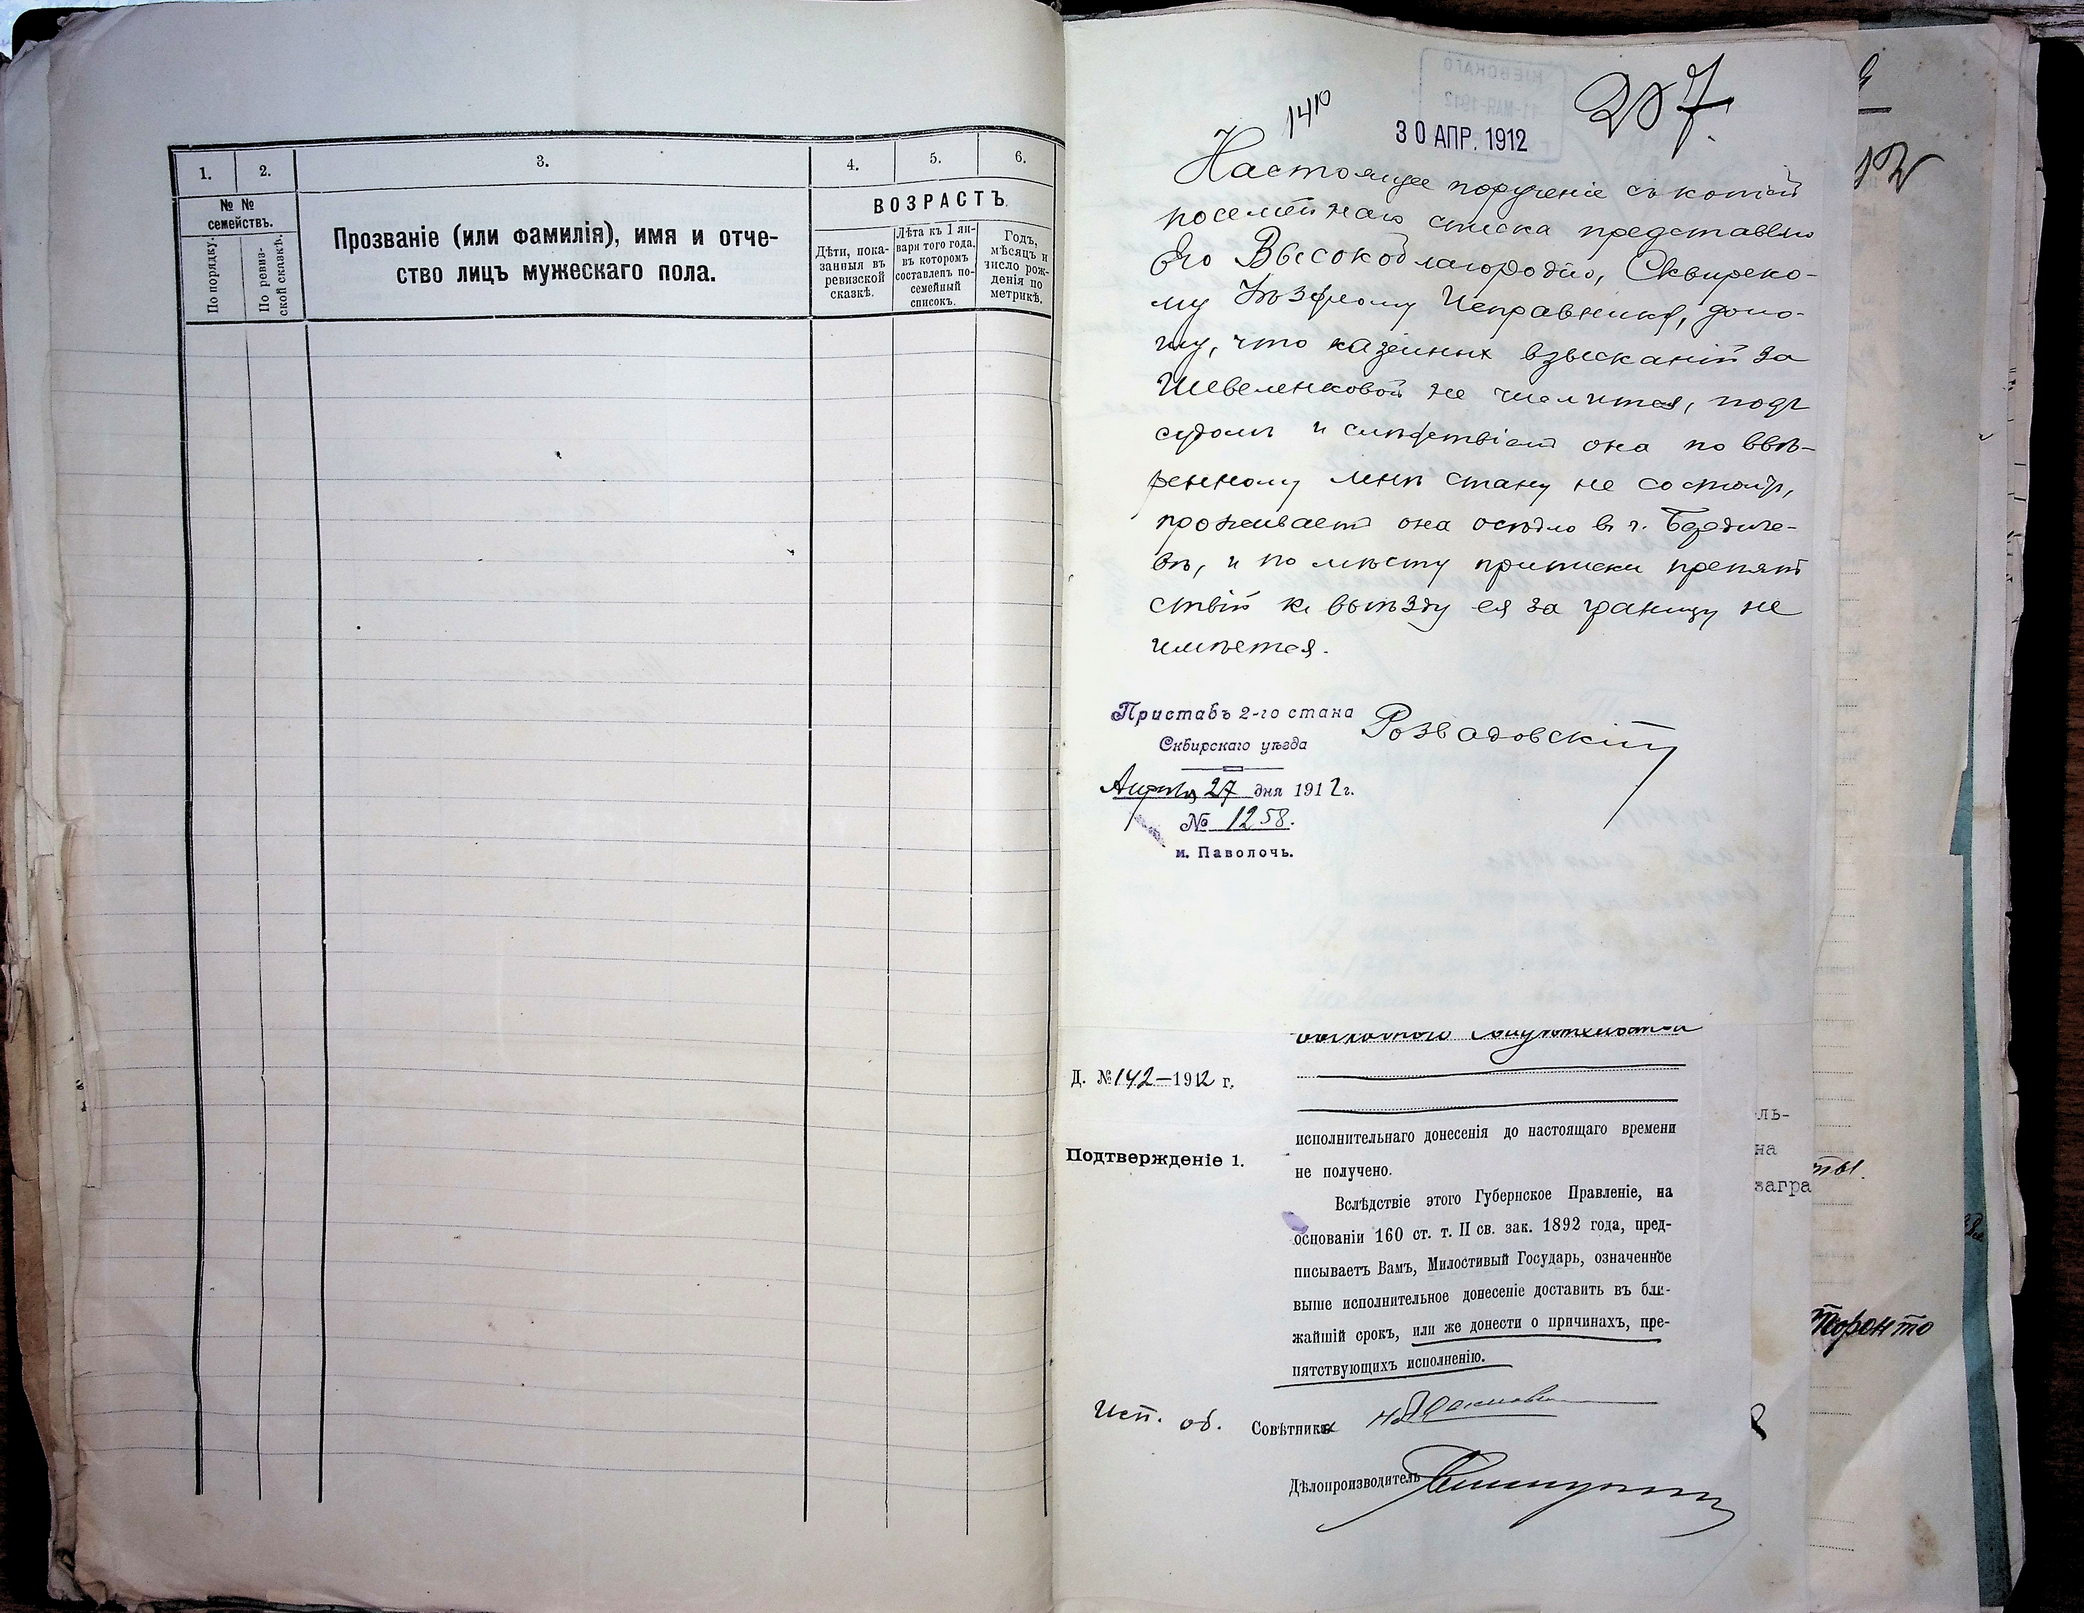 1.
2.
3.
4.
5.
6.
№ №
семействъ.
По порядку.
По ревиз-
ской сказкѣ.
Прозваніе (или фамилія), имя и отче-
ство лицъ мужескаго пола.
ВОЗРАСТЪ
Дѣти, пока-
занныя въ
ревизской
сказкѣ.
Лѣта къ 1 ян-
варя того года,
въ которомъ
составленъ по-
семейный
списокъ.
Годъ,
мѣсяцъ и
число рож-
денія по
метрикѣ.
КІЕВСКАГО
11-МАЯ-1912
1410
30 АПР. 1912
207
Настоящее порученіе съ копіей
посемейнаго списка представляю
Его Высокоблагородію, Сквирско-
му Уѣздному Исправнику, доно-
шу, что казенныхъ взысканій за
Шевеленковой не числится, подъ
судомъ и слѣдствіемъ она по ввѣ-
ренному мнѣ стану не состоитъ,
проживаетъ она осѣдло въ г. Бердиче-
вѣ, и по мѣсту приписки препят
ствій къ выѣзду ея за границу не
имѣется.
Приставъ 2-го стана
Сквирскаго уѣзда
Розвадовскій
Апрѣля 27 дня 1912 г.
№ 1258.
м. Паволочь.
Д. № 142—1912 г.
исполнительнаго донесенія до настоящаго времени
Подтвержденіе 1.
не получено.
Вслѣдствіе этого Губернское Правленіе, на
основаніи 160 ст. т. II св. зак. 1892 года, пред-
писываетъ Вамъ, Милостивый Государь, означенное
выше исполнительное донесеніе доставить въ бли-
жайшій срокъ, или же донести о причинахъ, пре-
пятствующихъ исполненію.
Исп. об. Совѣтника
Дѣлопроизводитель
ль-
на
загра
ты.
Торонто
12